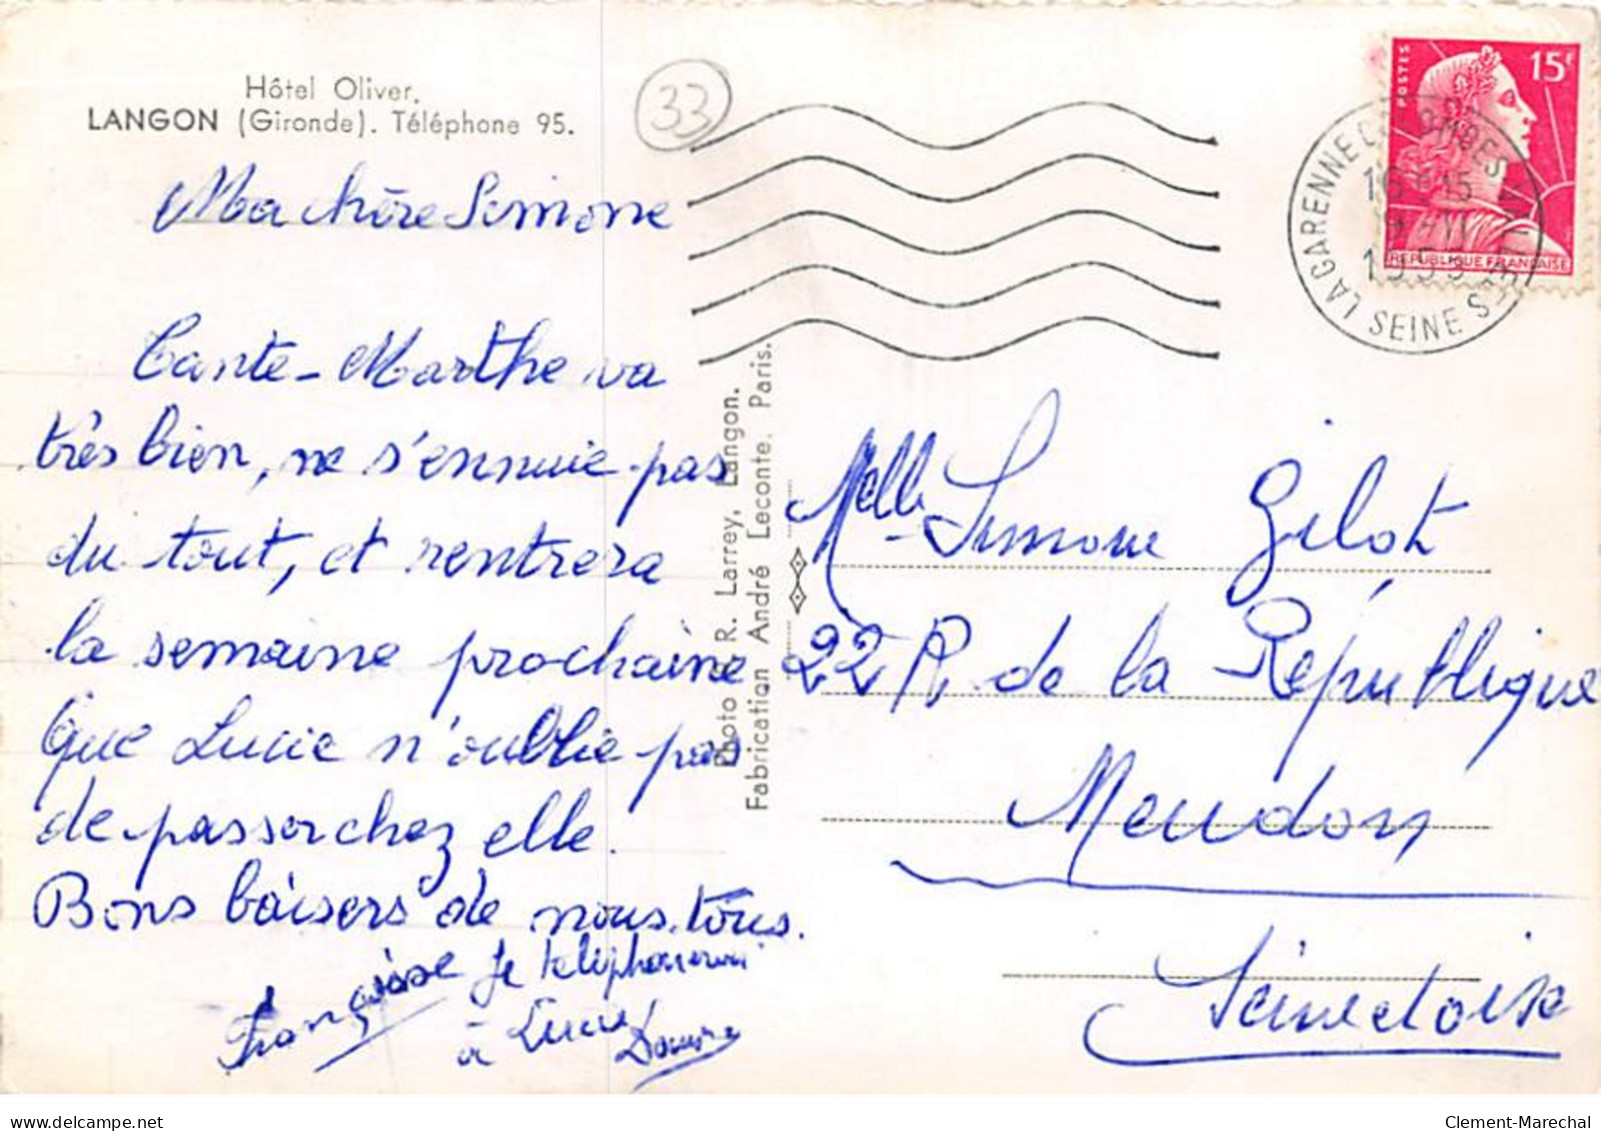 Hôtel Oliver.
LANGON (Gironde). Téléphone 95.
33
POSTES
15F
REPUBLIQUE FRANÇAISE
LA GARENNE COLOMBES
SEINE
Ma chère Simone
Tante Marthe va
très bien, ne s'ennuie pas
du tout, et rentrera
la semaine prochaine
Que Lucie n'oublie pas
de passer chez elle.
Bons baisers de nous tous.
Françoise
Je téléphonerai
à Lucie
Photo R. Larrey, Langon.
Fabrication André Leconte. Paris.
Melle Simone Gilot
22 R. de la République
Meudon
Seine et oise
delcampe.net
Clement-Marechal